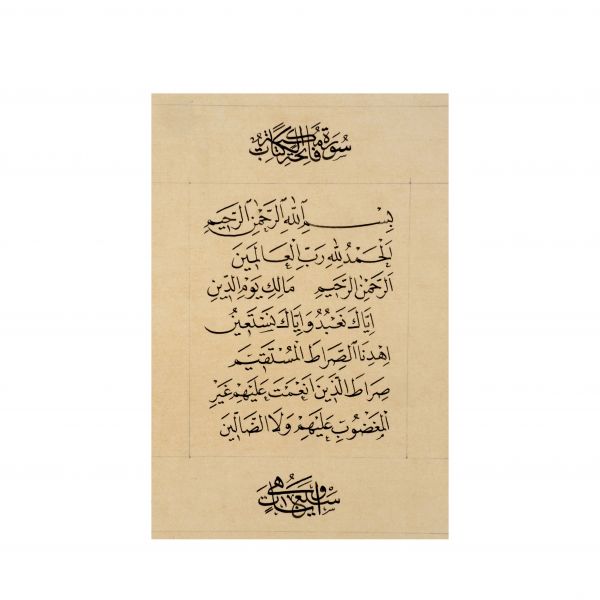 سُورَة فَاتِحَة الكِتَاب
بِسْمِ اللهِ الرَّحْمٰنِ الرَّحِيمِ
الْحَمْدُ لِلهِ رَبِّ الْعَالَمِينَ
الرَّحْمٰنِ الرَّحِيمِ مَالِكِ يَوْمِ الدِّينِ
اِيَّاكَ نَعْبُدُ وَاِيَّاكَ نَسْتَعِينُ
اِهْدِنَا الصِّرَاطَ الْمُسْتَقِيمَ
صِرَاطَ الَّذِينَ اَنْعَمْتَ عَلَيْهِمْ غَيْرِ
الْمَغْضُوبِ عَلَيْهِمْ وَلَا الضَّالِّينَ